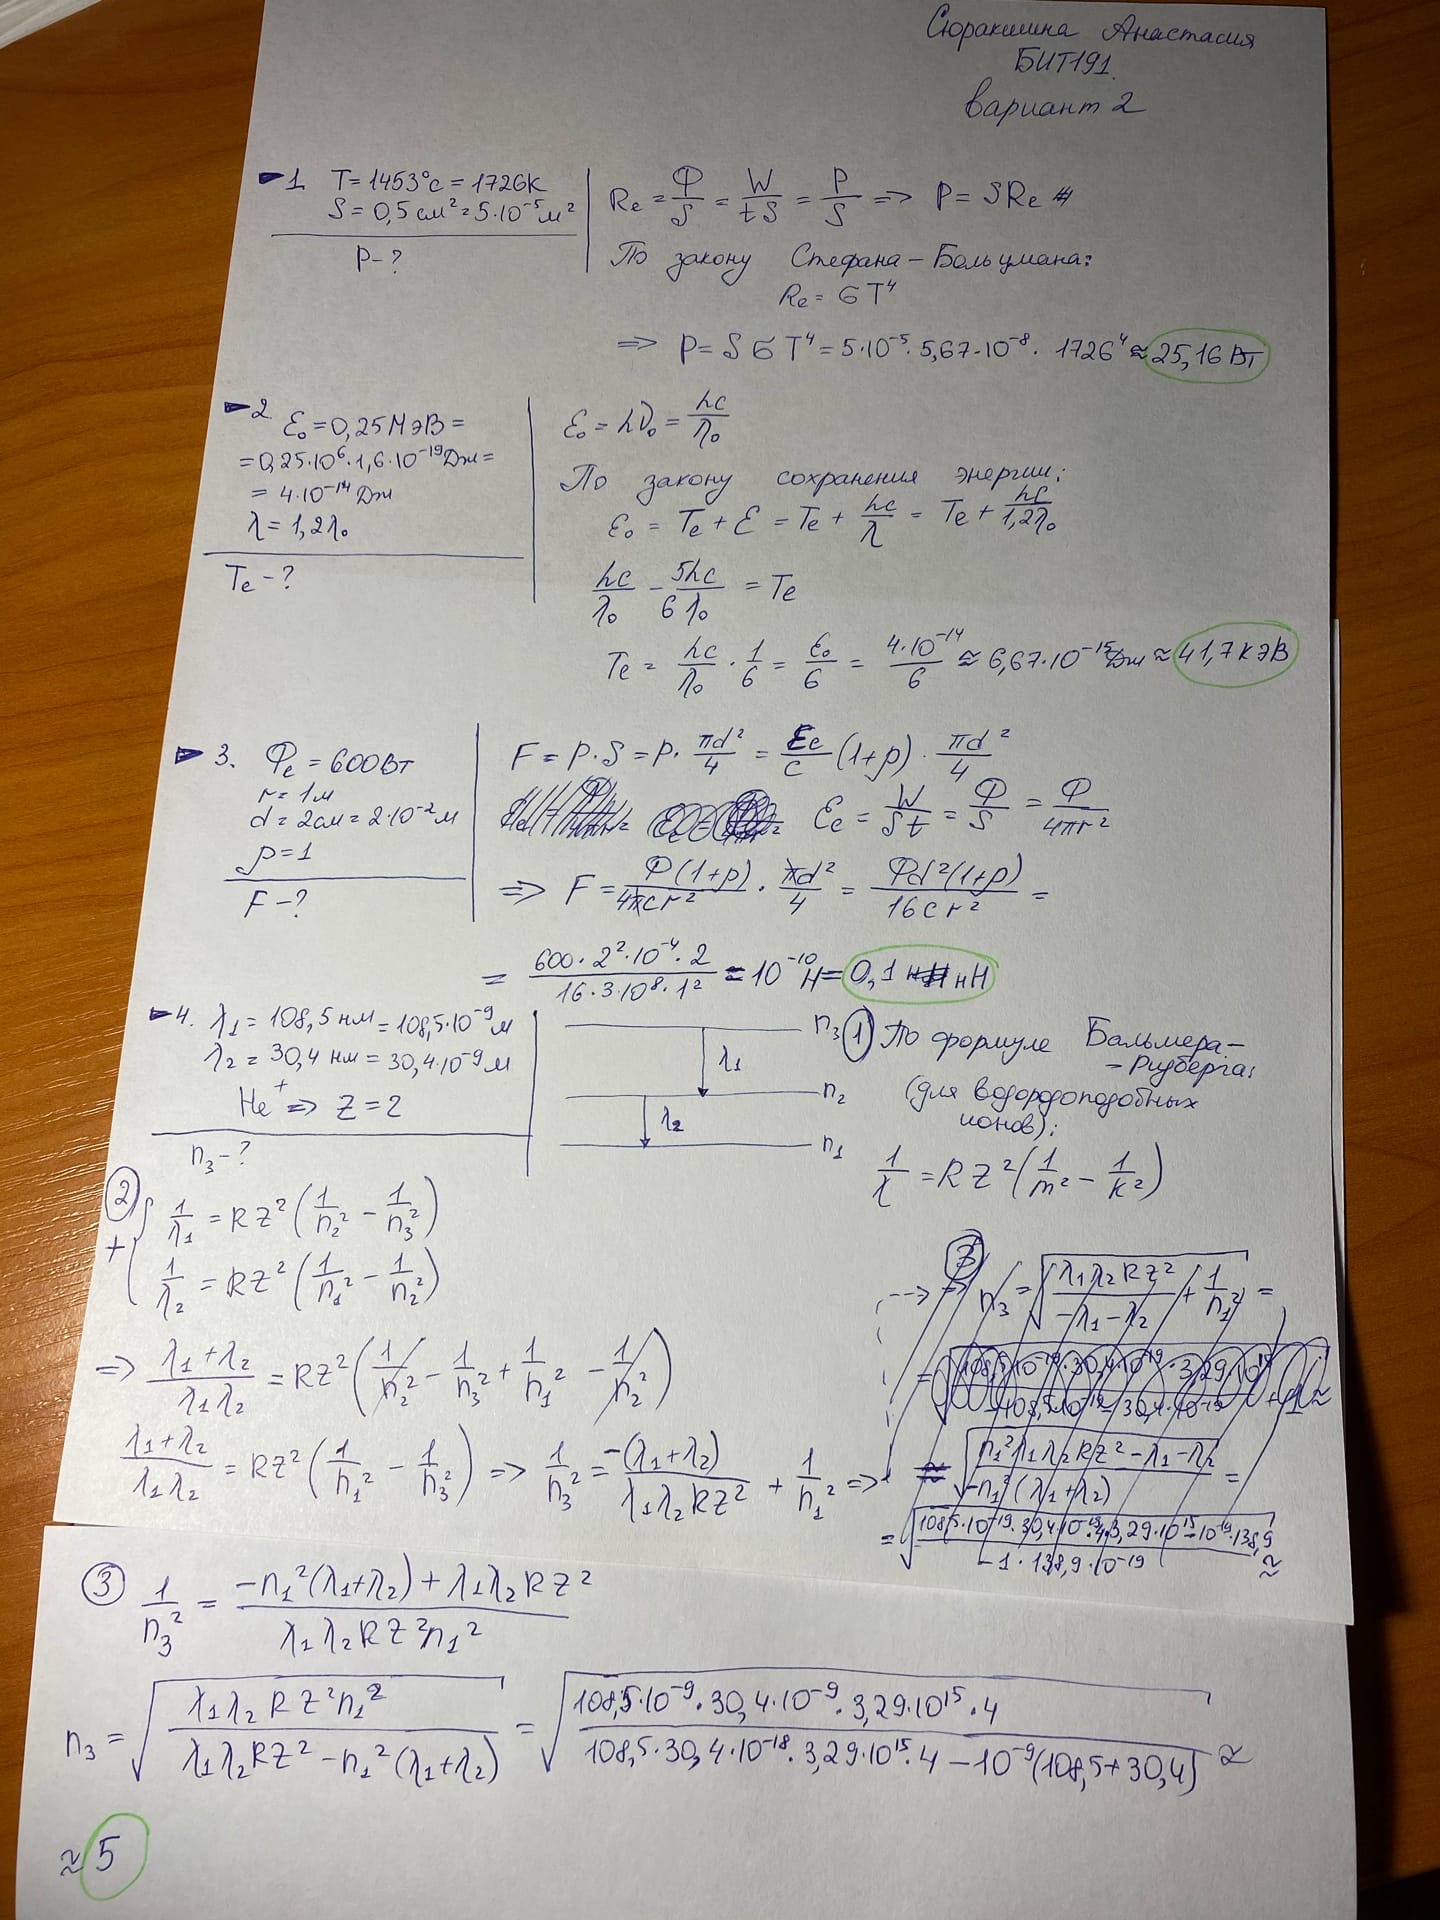 Сюракшина Анастасия
БИТ191.
вариант 2
1. T = 1453°c = 1726K
S = 0,5 см² = 5·10⁻⁵ м²
P - ?
Re = Φ/S = W/tS = P/S => P = SRe
По закону Стефана-Больцмана:
Re = σT⁴
=> P = SσT⁴ = 5·10⁻⁵·5,67·10⁻⁸·1726⁴ ≈ 25,16 Вт
2 ε₀ = 0,25 МэВ =
= 0,25·10⁶·1,6·10⁻¹⁹ Дж =
= 4·10⁻¹⁴ Дж
λ = 1,2λ₀
Te - ?
ε₀ = hν₀ = hc/λ₀
По закону сохранения энергии:
ε₀ = Te + ε = Te + hc/λ = Te + hc/1,2λ₀
hc/λ₀ - 5hc/6λ₀ = Te
Te = hc/λ₀ · 1/6 = ε₀/6 = 4·10⁻¹⁴/6 ≈ 6,67·10⁻¹⁵ Дж ≈ 41,7 кэВ
3. Φe = 600 Вт
r = 1м
d = 2см = 2·10⁻² м
ρ = 1
F - ?
F = P·S = P· πd²/4 = Ee/c (1+ρ) · πd²/4
Ee = W/St = Φ/S = Φ/4πr²
=> F = Φ(1+ρ)/4πcr² · πd²/4 = Φd²(1+ρ)/16cr² =
= 600·2²·10⁻⁴·2/16·3·10⁸·1² = 10⁻¹⁰ Н = 0,1 нН
4. λ₁ = 108,5 нм = 108,5·10⁻⁹ м
λ₂ = 30,4 нм = 30,4·10⁻⁹ м
He⁺ => Z = 2
n₃ - ?
n₃
λ₁
n₂
λ₂
n₁
1 По формуле Бальмера-
-Ридберга:
(для водородоподобных
ионов):
1/λ = RZ²(1/m² - 1/k²)
2
+ { 1/λ₁ = RZ²(1/n₂² - 1/n₃²)
1/λ₂ = RZ²(1/n₁² - 1/n₂²)
=> λ₁+λ₂/λ₁λ₂ = RZ²(1/n₂² - 1/n₃² + 1/n₁² - 1/n₂²)
λ₁+λ₂/λ₁λ₂ = RZ²(1/n₁² - 1/n₃²) => 1/n₃² = -(λ₁+λ₂)/λ₁λ₂RZ² + 1/n₁² =>
3 => n₃ = √(λ₁λ₂RZ²/-λ₁-λ₂ + 1/n₁²) =
= √(n₁²λ₁λ₂RZ²-λ₁-λ₂/-n₁²(λ₁+λ₂)) =
= √(108,5·10⁻¹⁹·30,4·10⁻¹⁹·4·3,29·10¹⁵-10⁻¹⁹·138,9/-1·138,9·10⁻¹⁹) ≈
3 1/n₃² = -n₁²(λ₁+λ₂)+λ₁λ₂RZ²/λ₁λ₂RZ²n₁²
n₃ = √(λ₁λ₂RZ²n₁²/λ₁λ₂RZ²-n₁²(λ₁+λ₂)) = √(108,5·10⁻⁹·30,4·10⁻⁹·3,29·10¹⁵·4/108,5·30,4·10⁻¹⁸·3,29·10¹⁵·4-10⁻⁹(108,5+30,4)) ≈
≈ 5